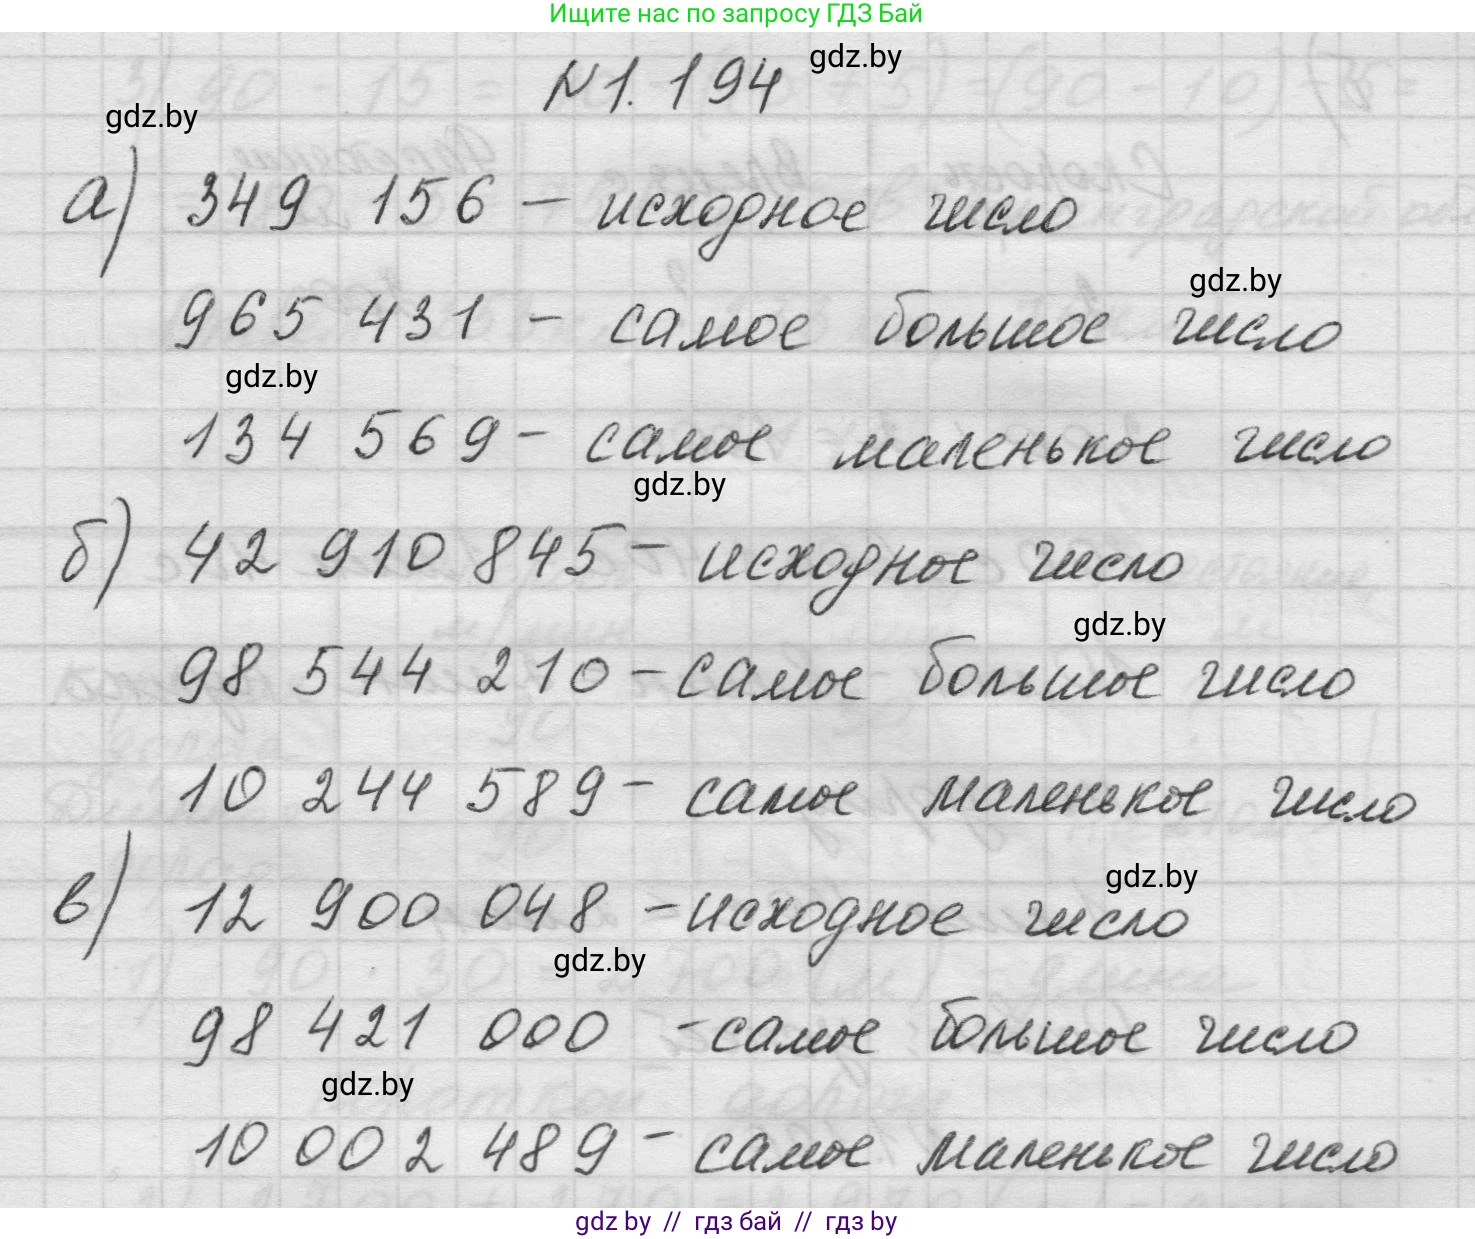 Ищите нас по запросу ГДЗ Бай
gdz.by
№1.194
gdz.by
а) 349 156 – исходное число
gdz.by
965 431 – самое большое число
gdz.by
134 569 – самое маленькое число
gdz.by
б) 42 910 845 – исходное число
gdz.by
98 544 210 – самое большое число
10 244 589 – самое маленькое число
gdz.by
в) 12 900 048 – исходное число
gdz.by
98 421 000 – самое большое число
gdz.by
10 002 489 – самое маленькое число
gdz by // гдз бай // гдз by